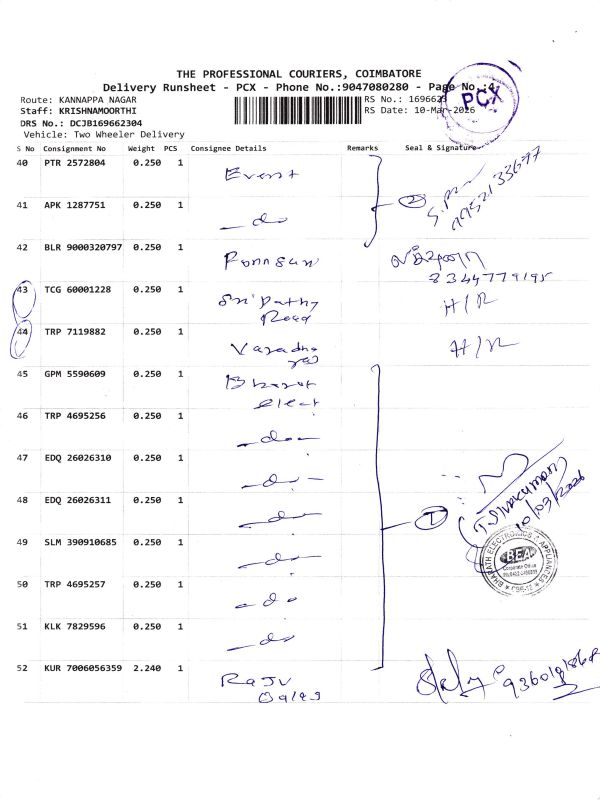 THE PROFESSIONAL COURIERS, COIMBATORE
Delivery Runsheet - PCX - Phone No.:9047080280 - Page No.:4
PCX
Route: KANNAPPA NAGAR
RS No.: 1696623
Staff: KRISHNAMOORTHI
RS Date: 10-Mar-2026
DRS No.: DCJB169662304
Vehicle: Two Wheeler Delivery
S No Consignment No Weight PCS Consignee Details Remarks Seal & Signature
40 PTR 2572804 0.250 1 Event
41 APK 1287751 0.250 1 -do
2
42 BLR 9000320797 0.250 1 Ponnsun
43 TCG 60001228 0.250 1 Sri Pathy Road H/R
44 TRP 7119882 0.250 1 H/R
45 GPM 5590609 0.250 1 Bharat elect
46 TRP 4695256 0.250 1 -do-
47 EDQ 26026310 0.250 1 -do-
48 EDQ 26026311 0.250 1 -do-
7
(T. Sivakumar)
10/03/2026
49 SLM 390910685 0.250 1 -do-
BHARATH ELECTRONICS & APPLIANCES
BEA
Corporate Office
CBE-12
50 TRP 4695257 0.250 1 -do
51 KLK 7829596 0.250 1 -do
52 KUR 7006056359 2.240 1 Raju